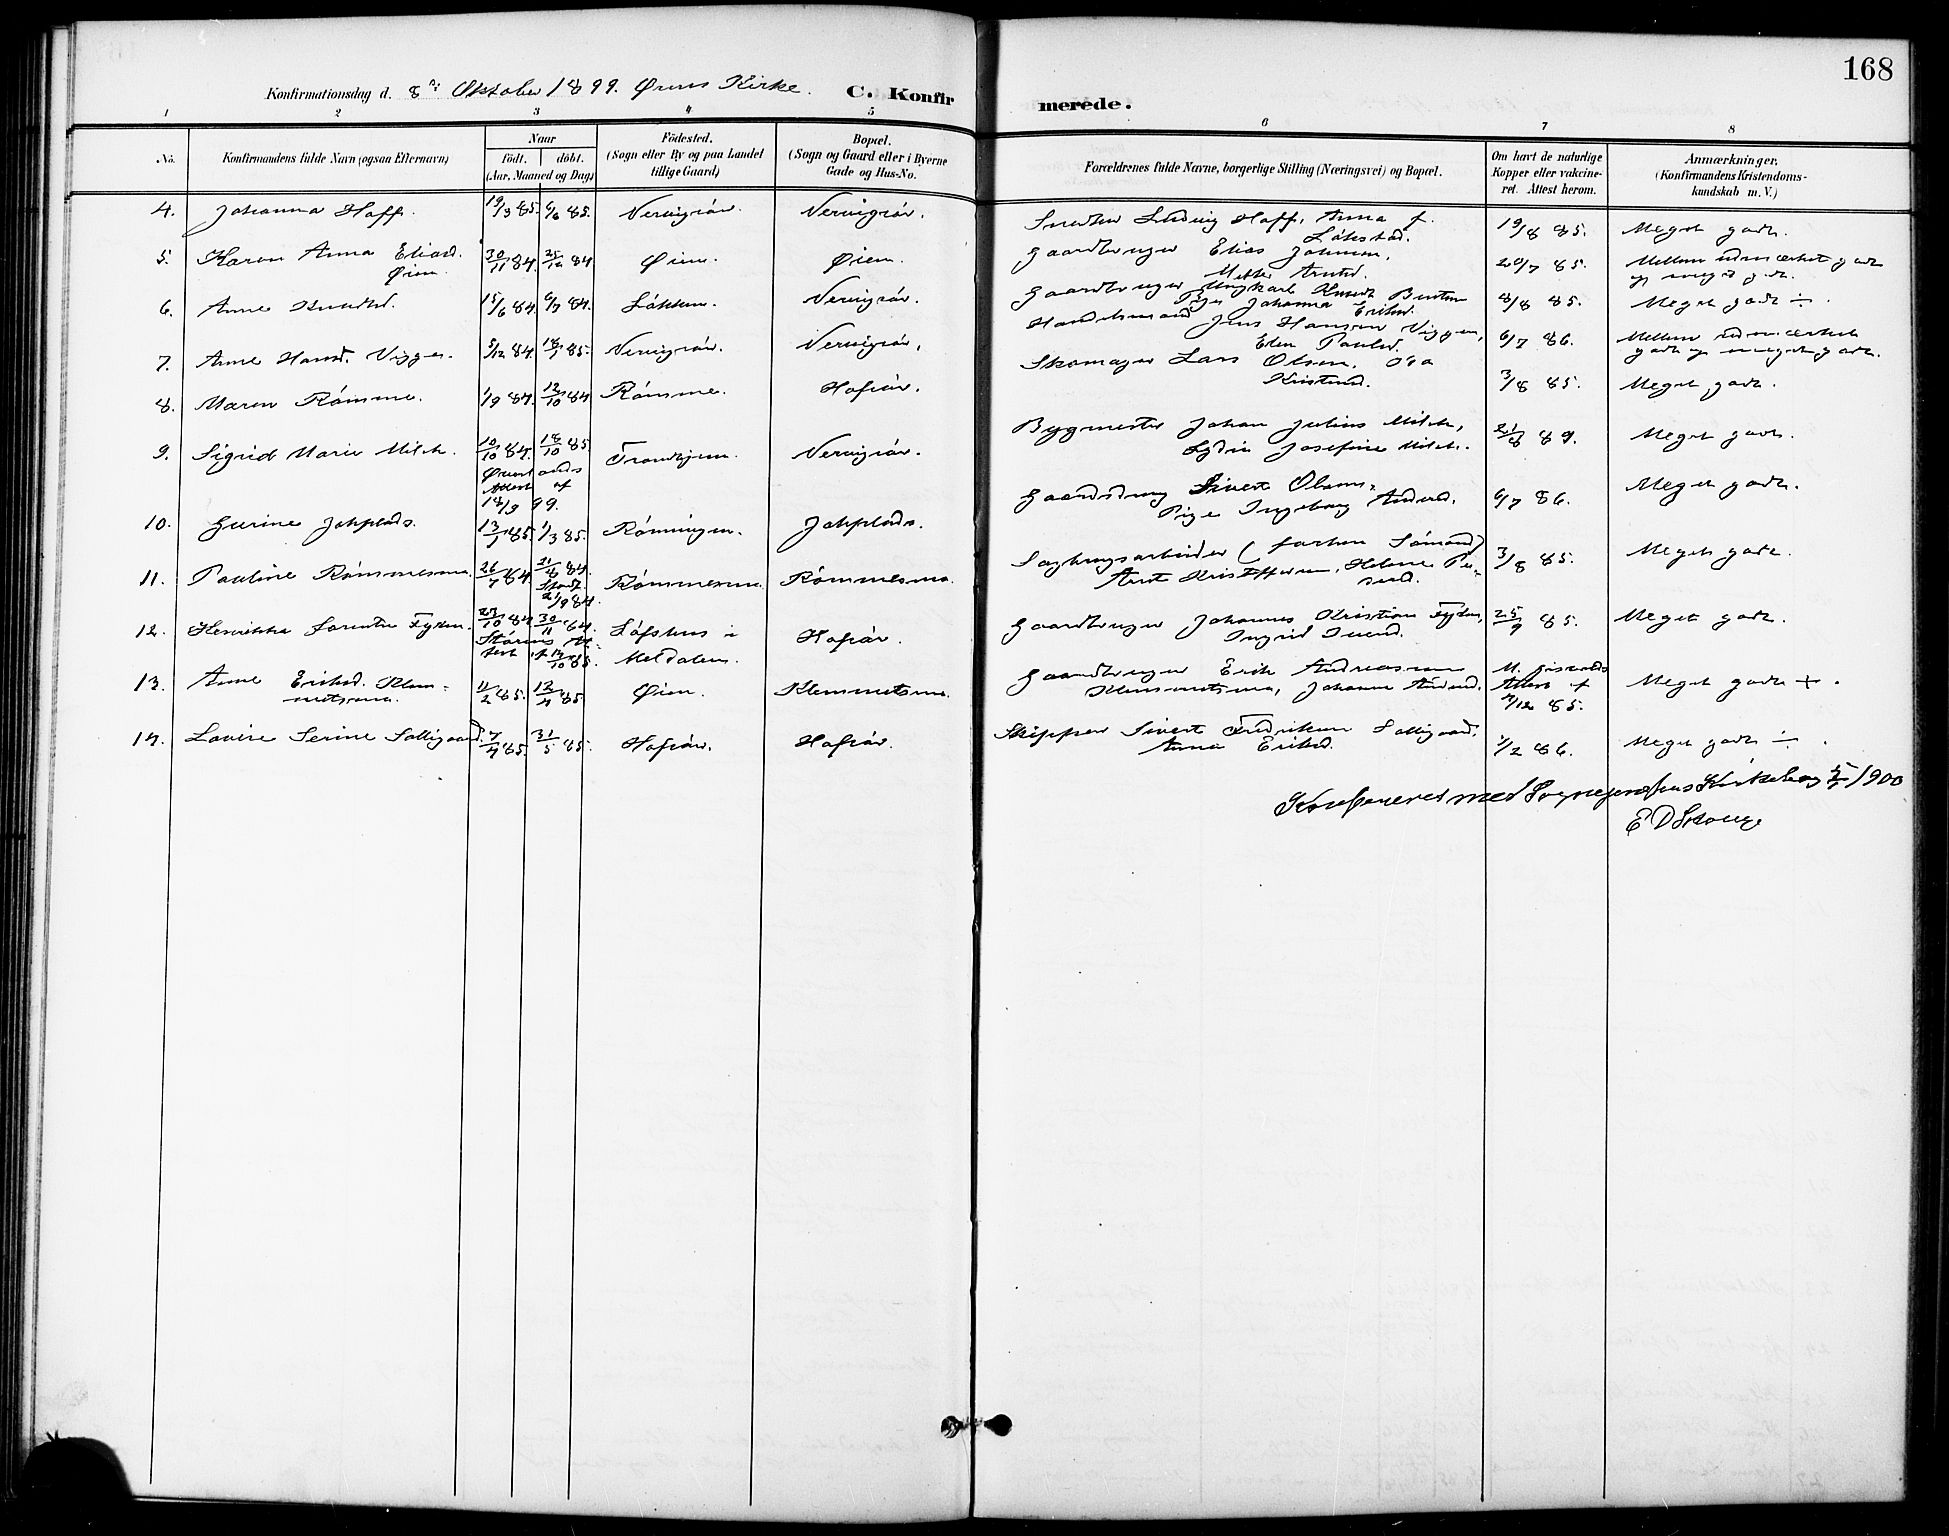 168
Konfirmationsdag d. 8de Oktober 1899. Øens Kirke.
C. Konfirmerede.
1 2 3 4 5 6 7 8
No. Konfirmandens fulde Navn (ogsaa Efternavn) Naar født. døbt. (Aar, Maaned og Dag) Födested. (Sogn eller By og paa Landet tillige Gaard) Bopæl. (Sogn og Gaard eller i Byerne Gade og Hus-No. Forældrenes fulde Navne, borgerlige Stilling (Næringsvei) og Bopæl. Om havt de naturlige Kopper eller vakcineret. Attest herom. Anmærkninger. (Konfirmandens Kristendomskundskab m. V.)
4. Johanna Hoff. 19/3 85. 6/6 85. Snedker Ludvig Hoff, Anna f. 19/8 85. Meget godt.
Løkstad.
5. Karen Anna Eliasd. 30/11 84. 25/12 84 Øien. Øien. Gaardbruger Elias Johnsen, 20/7 85. Mellem udmærket godt
Øien. Mette Arntsd. og meget godt.
6. Anne Knudtsd. 15/6 84. 6/7 84. Løkken. Ungkarl Knudt 8/8 85. Meget godt ÷.
Pige Johanna Eriksd.
7. Anne Hansd. Viggen. 5/12 84 18/1 85. Handelsmand Jens Hansen Viggen, 6/7 86. Mellem udmærket
Elen Paulsd. godt og meget godt.
8. Maren Rømme. 1/9 84. 12/10 84 Rømme. Hofsør. Skomager Lars Olsen, 3/8 85. Meget godt.
Kristensd.
9. Sigrid Marie Milch. 10/10 84. 18/10 85. Trondhjem. Bygmester Johan Julius Milch, 21/8 89. Meget godt.
Attest af Lydia Josefine Milch.
18/9 99.
10. Gurine Johplads. 13/1 85. 1/3 85. Rønningen. Johplads. Gaardsdreng Sivert Olsen, 6/7 86. Meget godt.
Pige Ingeborg Andersd.
11. Pauline Rømmesmo. 26/7 84. 31/8 84. Rømmesmo. Rømmesmo. Sagbrugsarbeider (forhen Sømand) 3/8 85. Meget godt.
21/9 84. Arnt Kristoffersen, Helene
12. Henrikke Lorentse Fyksen. 27/10 84 30/11 84. Løfshus i Hofsør. Gaardbruger Johannes Kristian 25/9 85. Meget godt.
Størens Attest af 13/10 85. Meldalen. Ingrid
13. Anne Eriksd. Klem- 11/2 85. 12/4 85 Øien. Klemmetsmo. Gaardbruger Erik Andreassen Meget godt +.
metsmo. Klemmetsmo, Johanna Attest af
/12 85.
14. Lovise Serine Solligaard. 7/4 85. 31/5 85. Hofsør. Hofsør. Skipper Sivert Fredriksen Solligaard, 1/2 86. Meget godt ÷.
Anna Eriksd.
Konfereret med Sognepræstens Kirkebog 5/ 1900